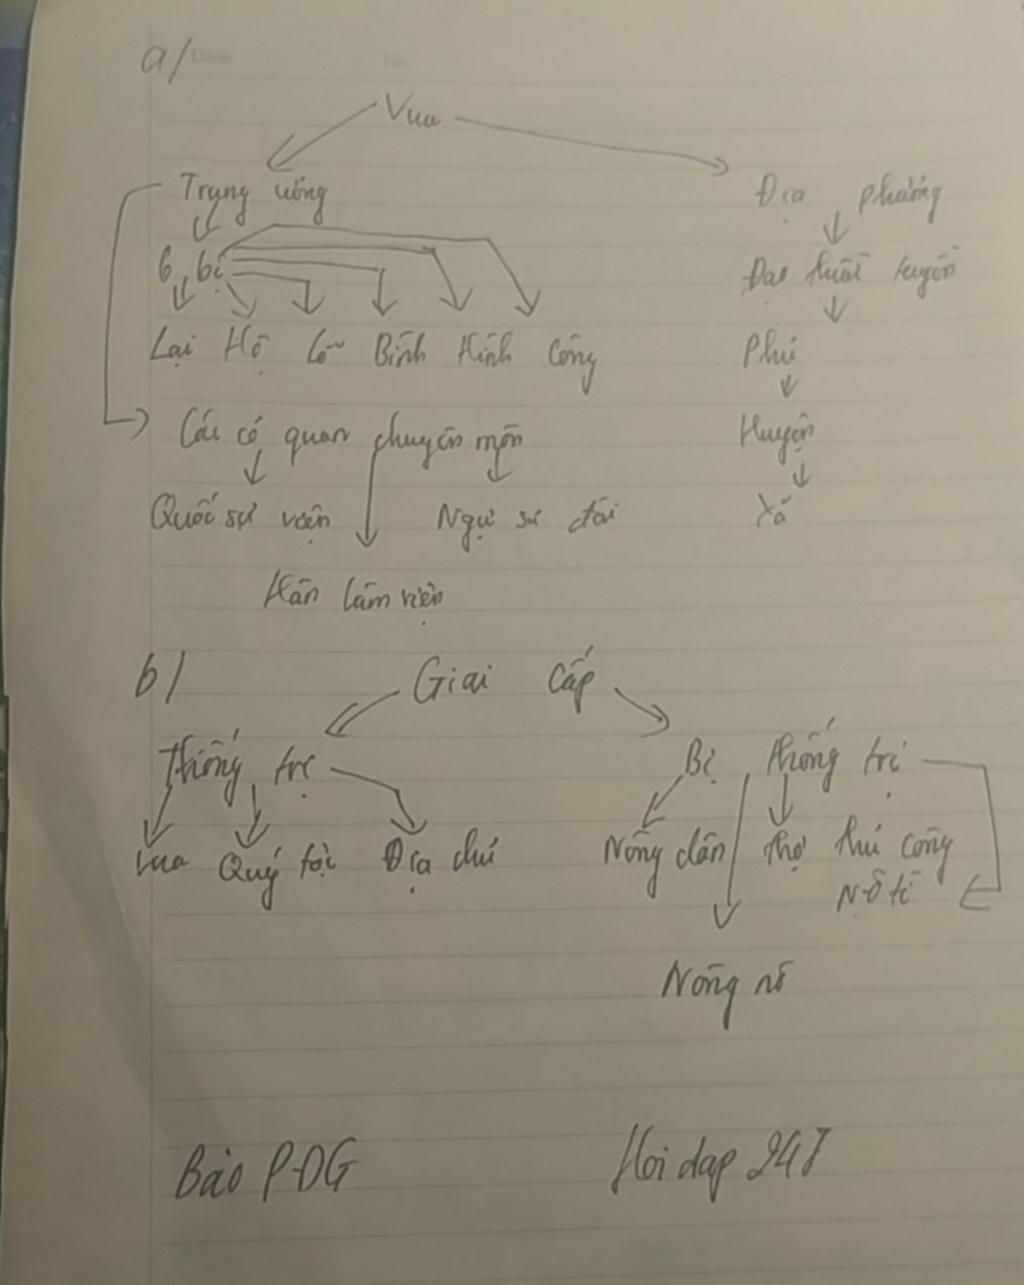 a/ Date No.
Vua
Trung ương Địa phương
6 bộ Đạo thừa tuyên
Lại Hộ Lễ Binh Hình Công Phủ
Các cơ quan chuyên môn Huyện
Quốc sự viện Ngự sử đài Xã
Hàn lâm viện
b/ Giai cấp
Thống trị Bị thống trị
Vua Quý tộc Địa chủ Nông dân thợ thủ công
Nô tì
Nông nô
Bảo PĐG Hoi dap 247